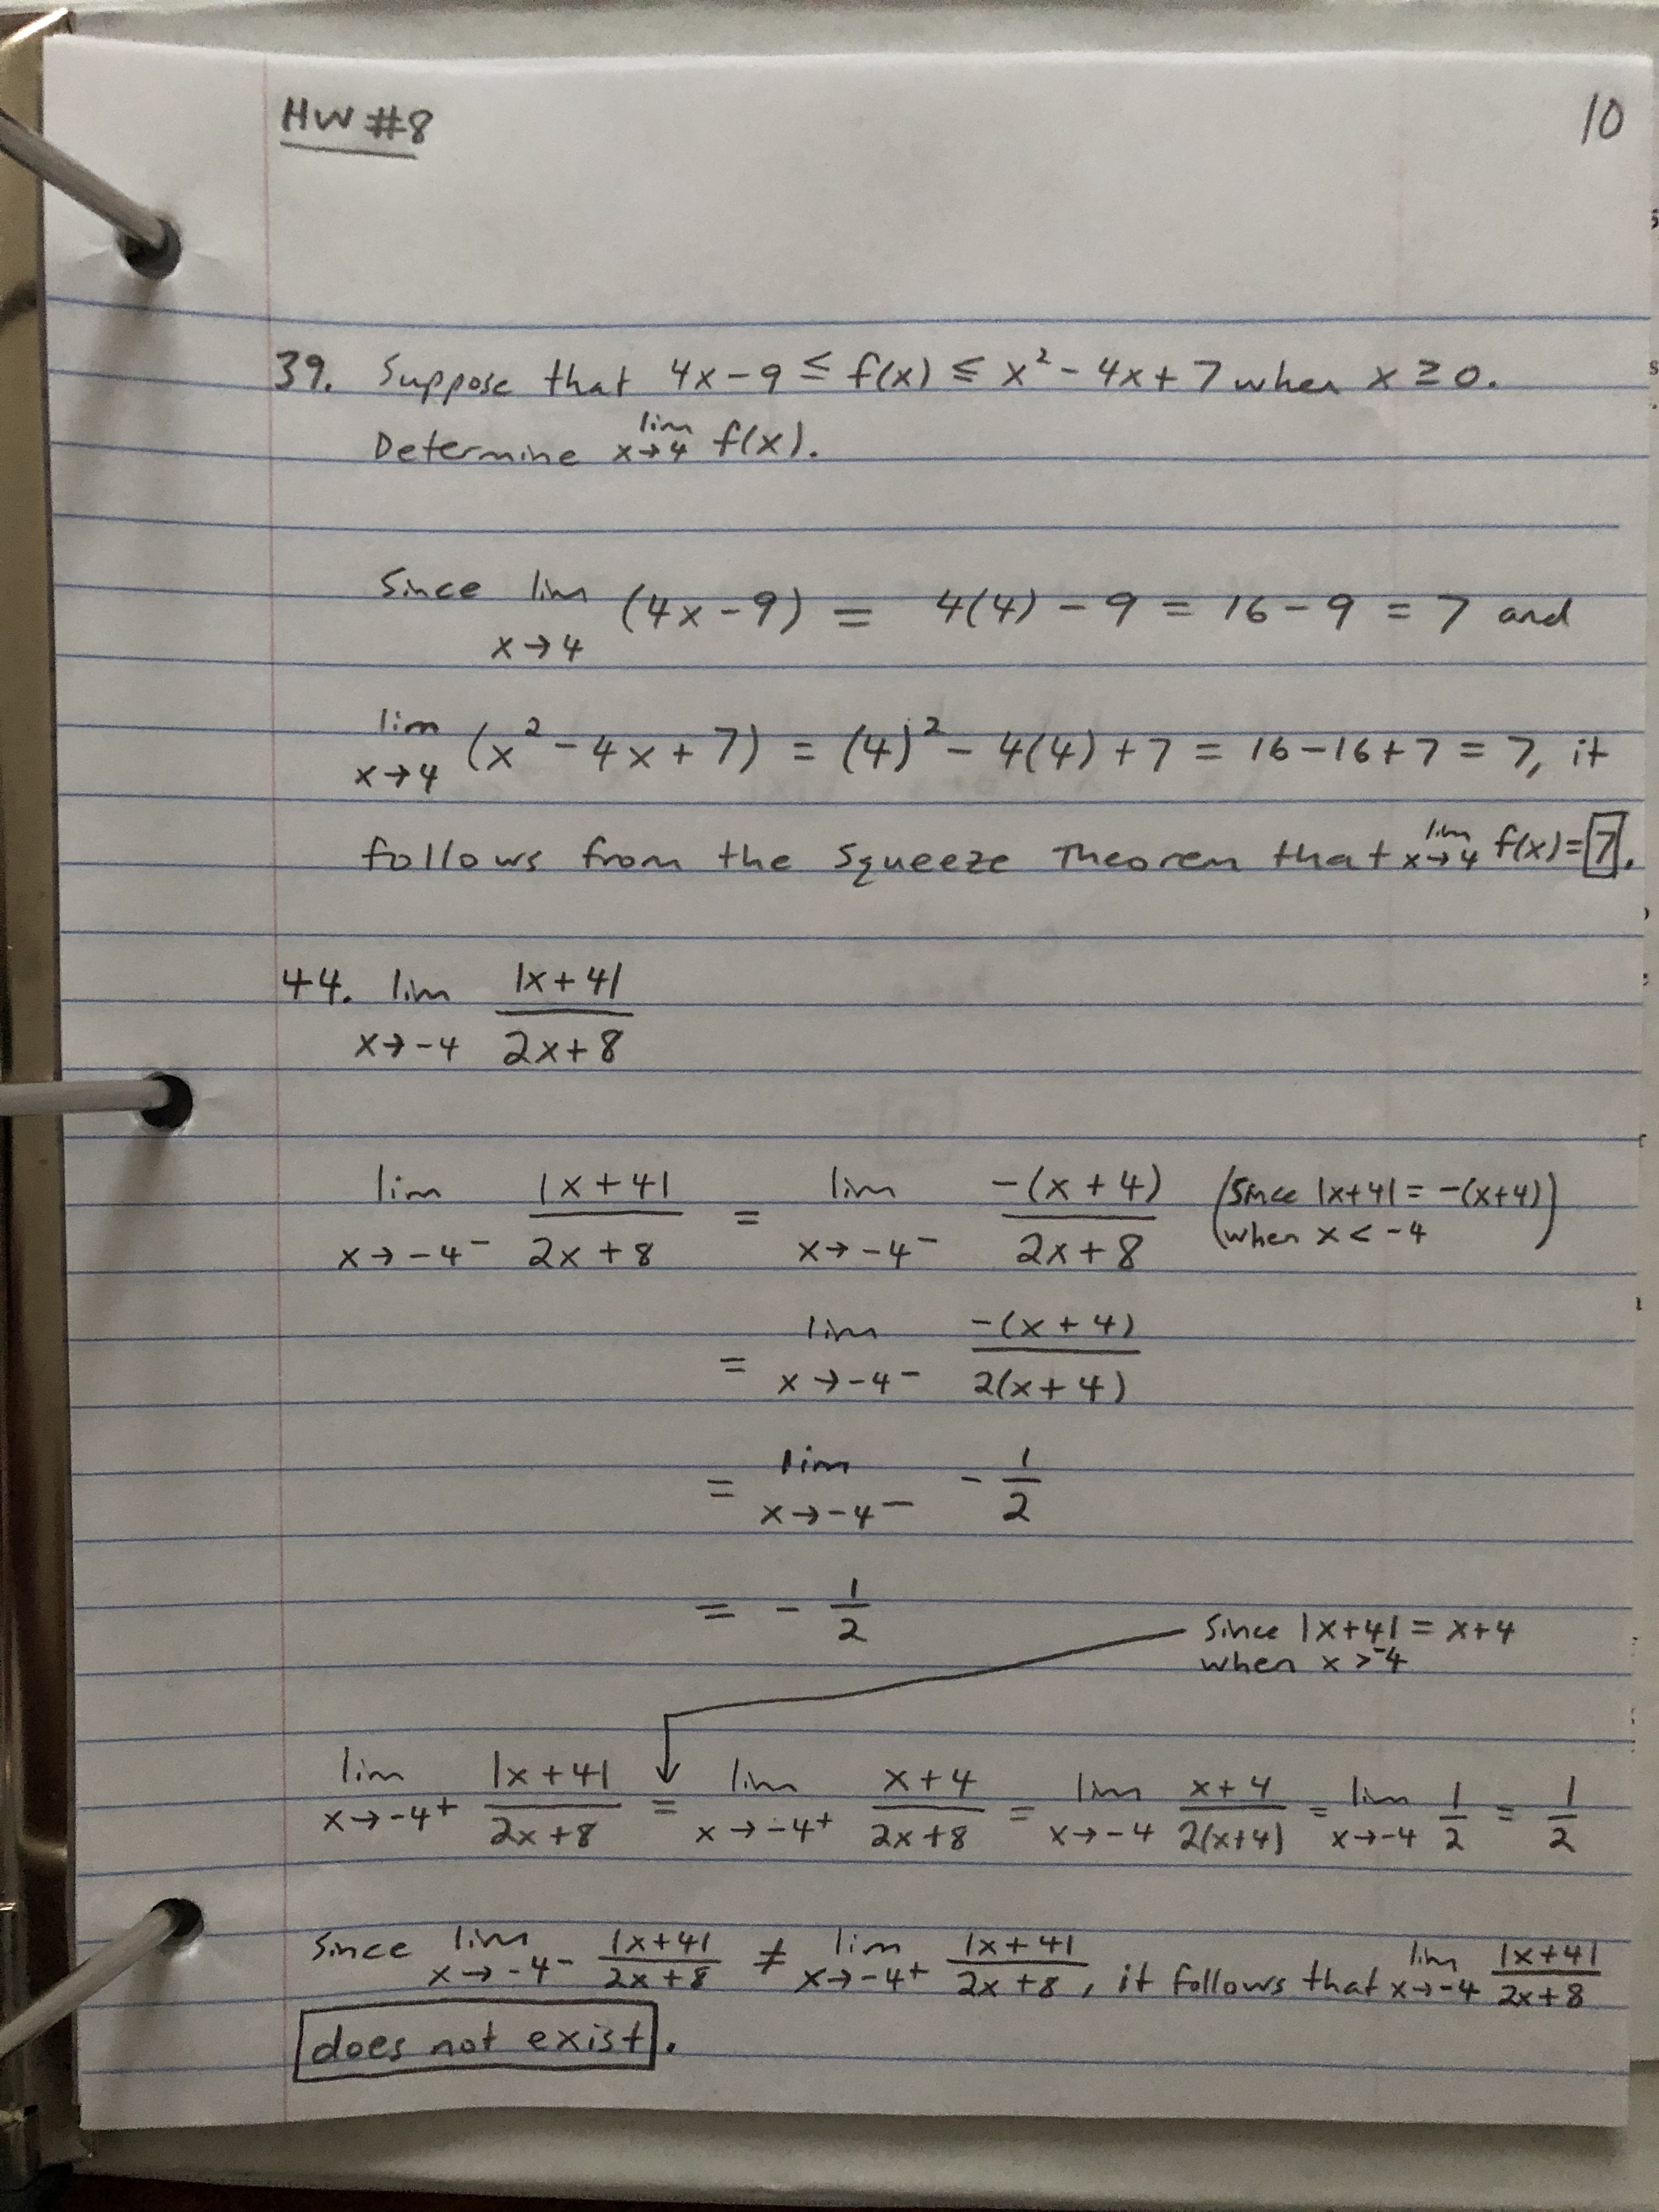 HW #8
10
39. Suppose that 4x-9 ≤ f(x) ≤ x² - 4x + 7 when x ≥ 0.
Determine lim x→4 f(x).
Since lim x→4 (4x-9) = 4(4) - 9 = 16 - 9 = 7 and
lim x→4 (x² - 4x + 7) = (4)² - 4(4) + 7 = 16 - 16 + 7 = 7, it
follows from the Squeeze Theorem that lim x→4 f(x) = 7.
44. lim x→-4 |x+4| / 2x+8
lim x→-4⁻ |x+4| / 2x+8 = lim x→-4⁻ -(x+4) / 2x+8 (since |x+4| = -(x+4)
when x < -4)
= lim x→-4⁻ -(x+4) / 2(x+4)
= lim x→-4⁻ - 1/2
= - 1/2
Since |x+4| = x+4
when x > -4
lim x→-4⁺ |x+4| / 2x+8 = lim x→-4⁺ x+4 / 2x+8 = lim x→-4 x+4 / 2(x+4) = lim x→-4 1/2 = 1/2
Since lim x→-4⁻ |x+4| / 2x+8 ≠ lim x→-4⁺ |x+4| / 2x+8, it follows that lim x→-4 |x+4| / 2x+8
does not exist.